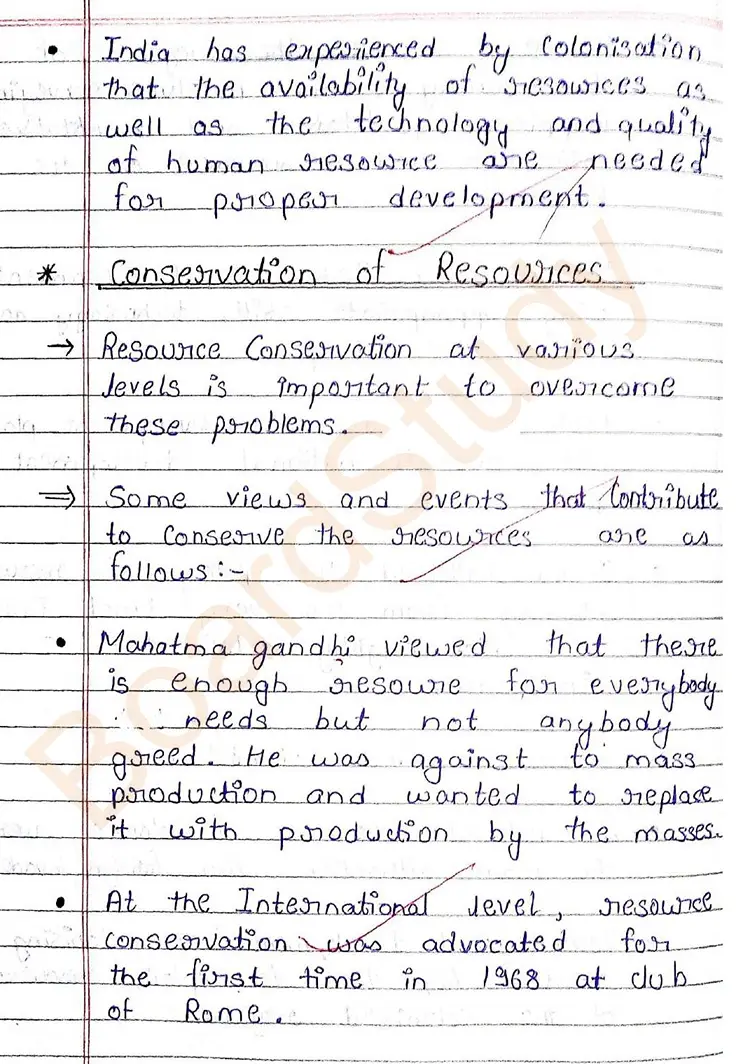 • India has experienced by Colonisation
that the availability of resources as
well as the technology and quality
of human resource are needed
for proper development.
* Conservation of Resources
→ Resource Conservation at various
levels is important to overcome
these problems.
⇒ Some views and events that Contribute
to conserve the resources are as
follows :-
• Mahatma gandhi viewed that there
is enough resoure for everybody
needs but not anybody
greed. He was against to mass
production and wanted to replace
it with production by the masses.
• At the International level, resource
conservation was advocated for
the first time in 1968 at club
of Rome.
BoardStudy